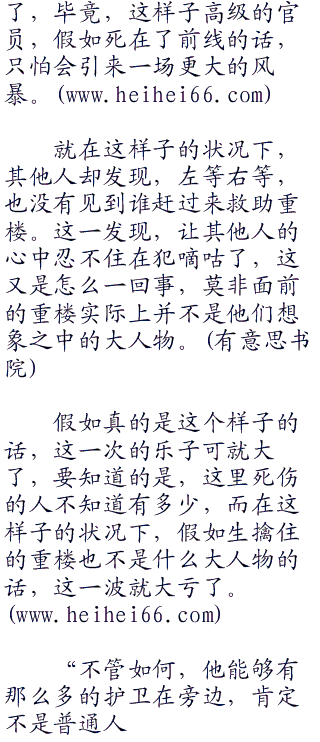 了，毕竟，这样子高级的官
员，假如死在了前线的话，
只怕会引来一场更大的风
暴。(www.heihei66.com)
就在这样子的状况下，
其他人却发现，左等右等，
也没有见到谁赶过来救助重
楼。这一发现，让其他人的
心中忍不住在犯嘀咕了，这
又是怎么一回事，莫非面前
的重楼实际上并不是他们想
象之中的大人物。(有意思书
院)
假如真的是这个样子的
话，这一次的乐子可就大
了，要知道的是，这里死伤
的人不知道有多少，而在这
样子的状况下，假如生擒住
的重楼也不是什么大人物的
话，这一波就大亏了。
(www.heihei66.com)
“不管如何，他能够有
那么多的护卫在旁边，肯定
不是普通人